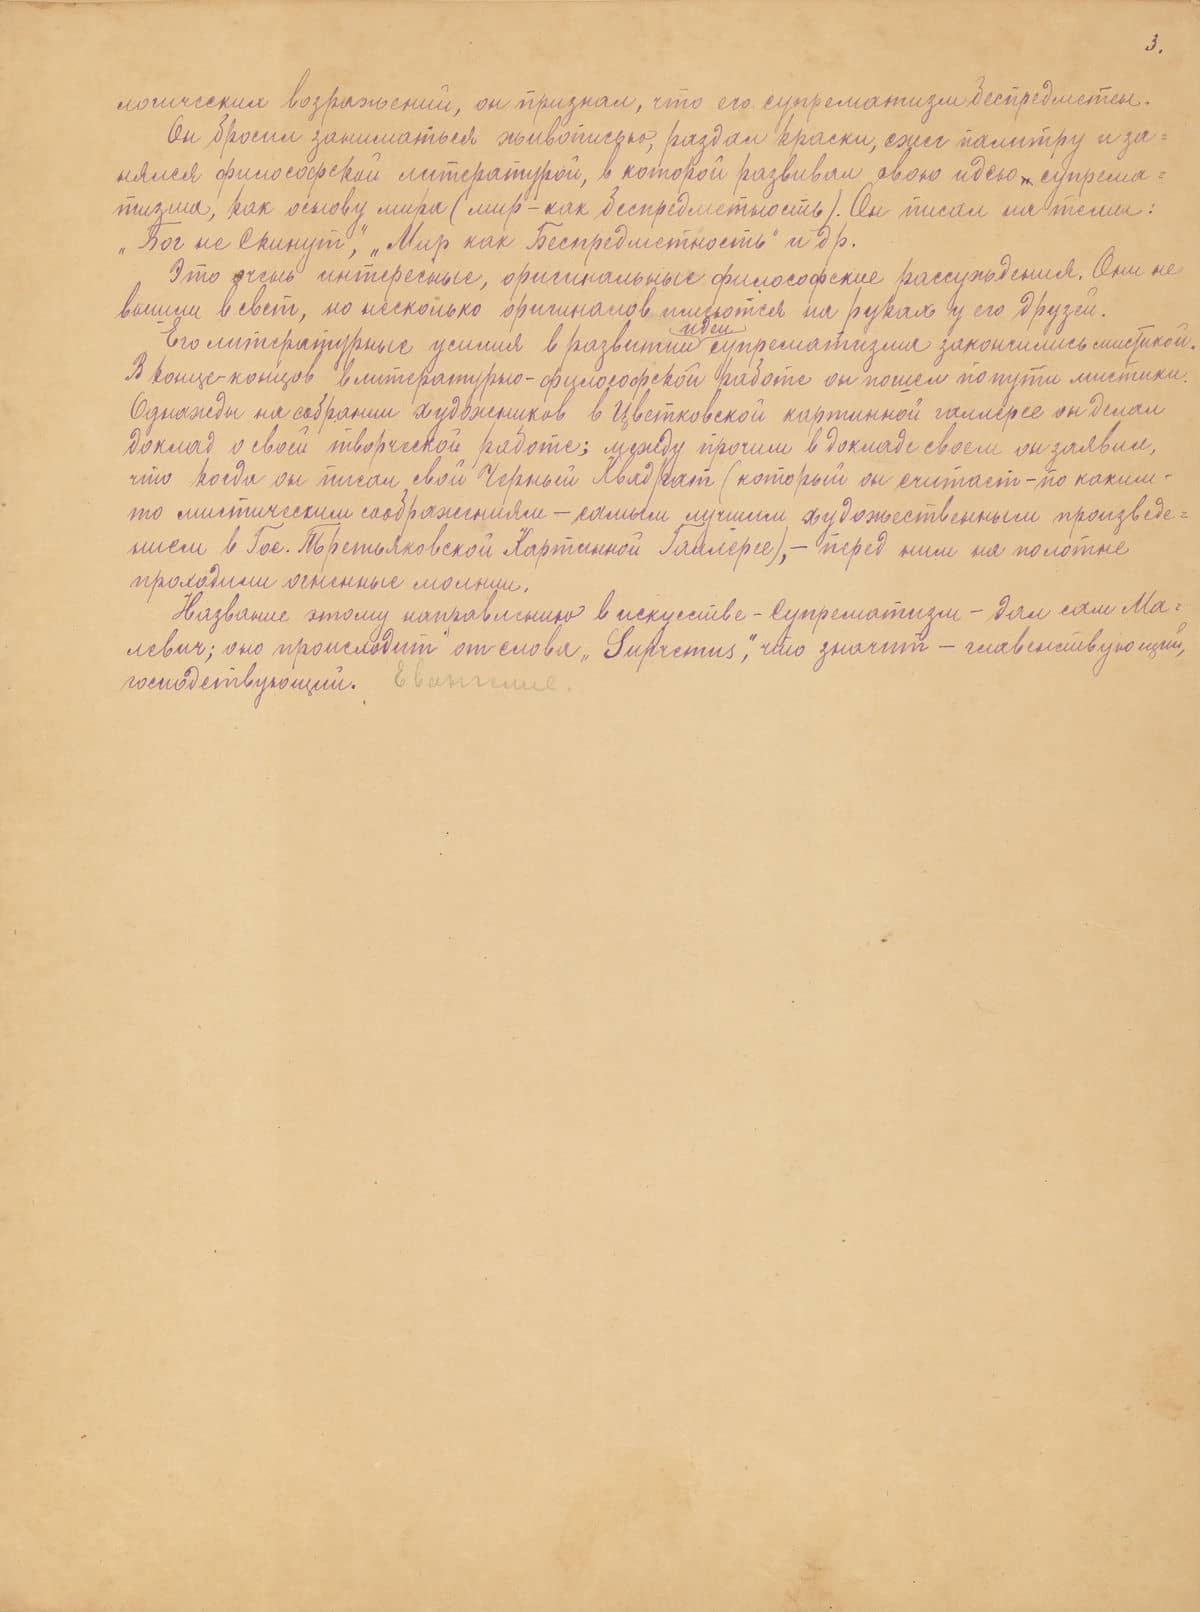 3.
логических возражений, он признал, что его супрематизм беспредметен.
Он бросил заниматься живописью, раздал краски, сжег палитру и за=
нялся философской литературой, в которой развивал свою идею супрема=
тизма, как основу мира (мир – как беспредметность). Он писал на темы:
„Бог не Скинут", „Мир как Беспредметность" и др.
Это очень интересные, оригинальные философские рассуждения. Они не
вышли в свет, но несколько оригиналов имеются на руках у его друзей.
идеи
Его литературные усилия в развитии супрематизма закончились мистикой.
В конце-концов в литературно-философской работе он пошел по пути мистики.
Однажды на собрании художников в Цветковской картинной галлерее он делал
доклад о своей творческой работе; между прочим в докладе своем он заявил,
что когда он писал свой Черный Квадрат (который он считает – по каким-
то мистическим соображениям – самым лучшим художественным произведе=
нием в Гос. Третьяковской Картинной Галлерее), – перед ним на полотне
проходили огненные молнии.
Название этому направлению в искусстве – Супрематизм – дал сам Ма=
левич; оно происходит от слова „Supremus", что значит – главенствующий,
господствующий. Евангелие.